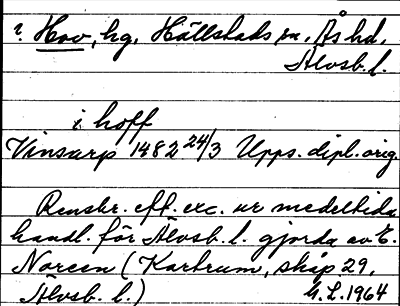 i. Hov, hg, Hällstads sn. Ås hd,
Älvsb. l.
i hoff
Vinsarp 1482 24/3 Upps. dipl. orig.
Renskr. eft. exc. ur medeltida
handl. för Älvsb. l. gjorda av E.
Noreen (Kartrum, skåp 29,
Älvsb. l.) G.L. 1964